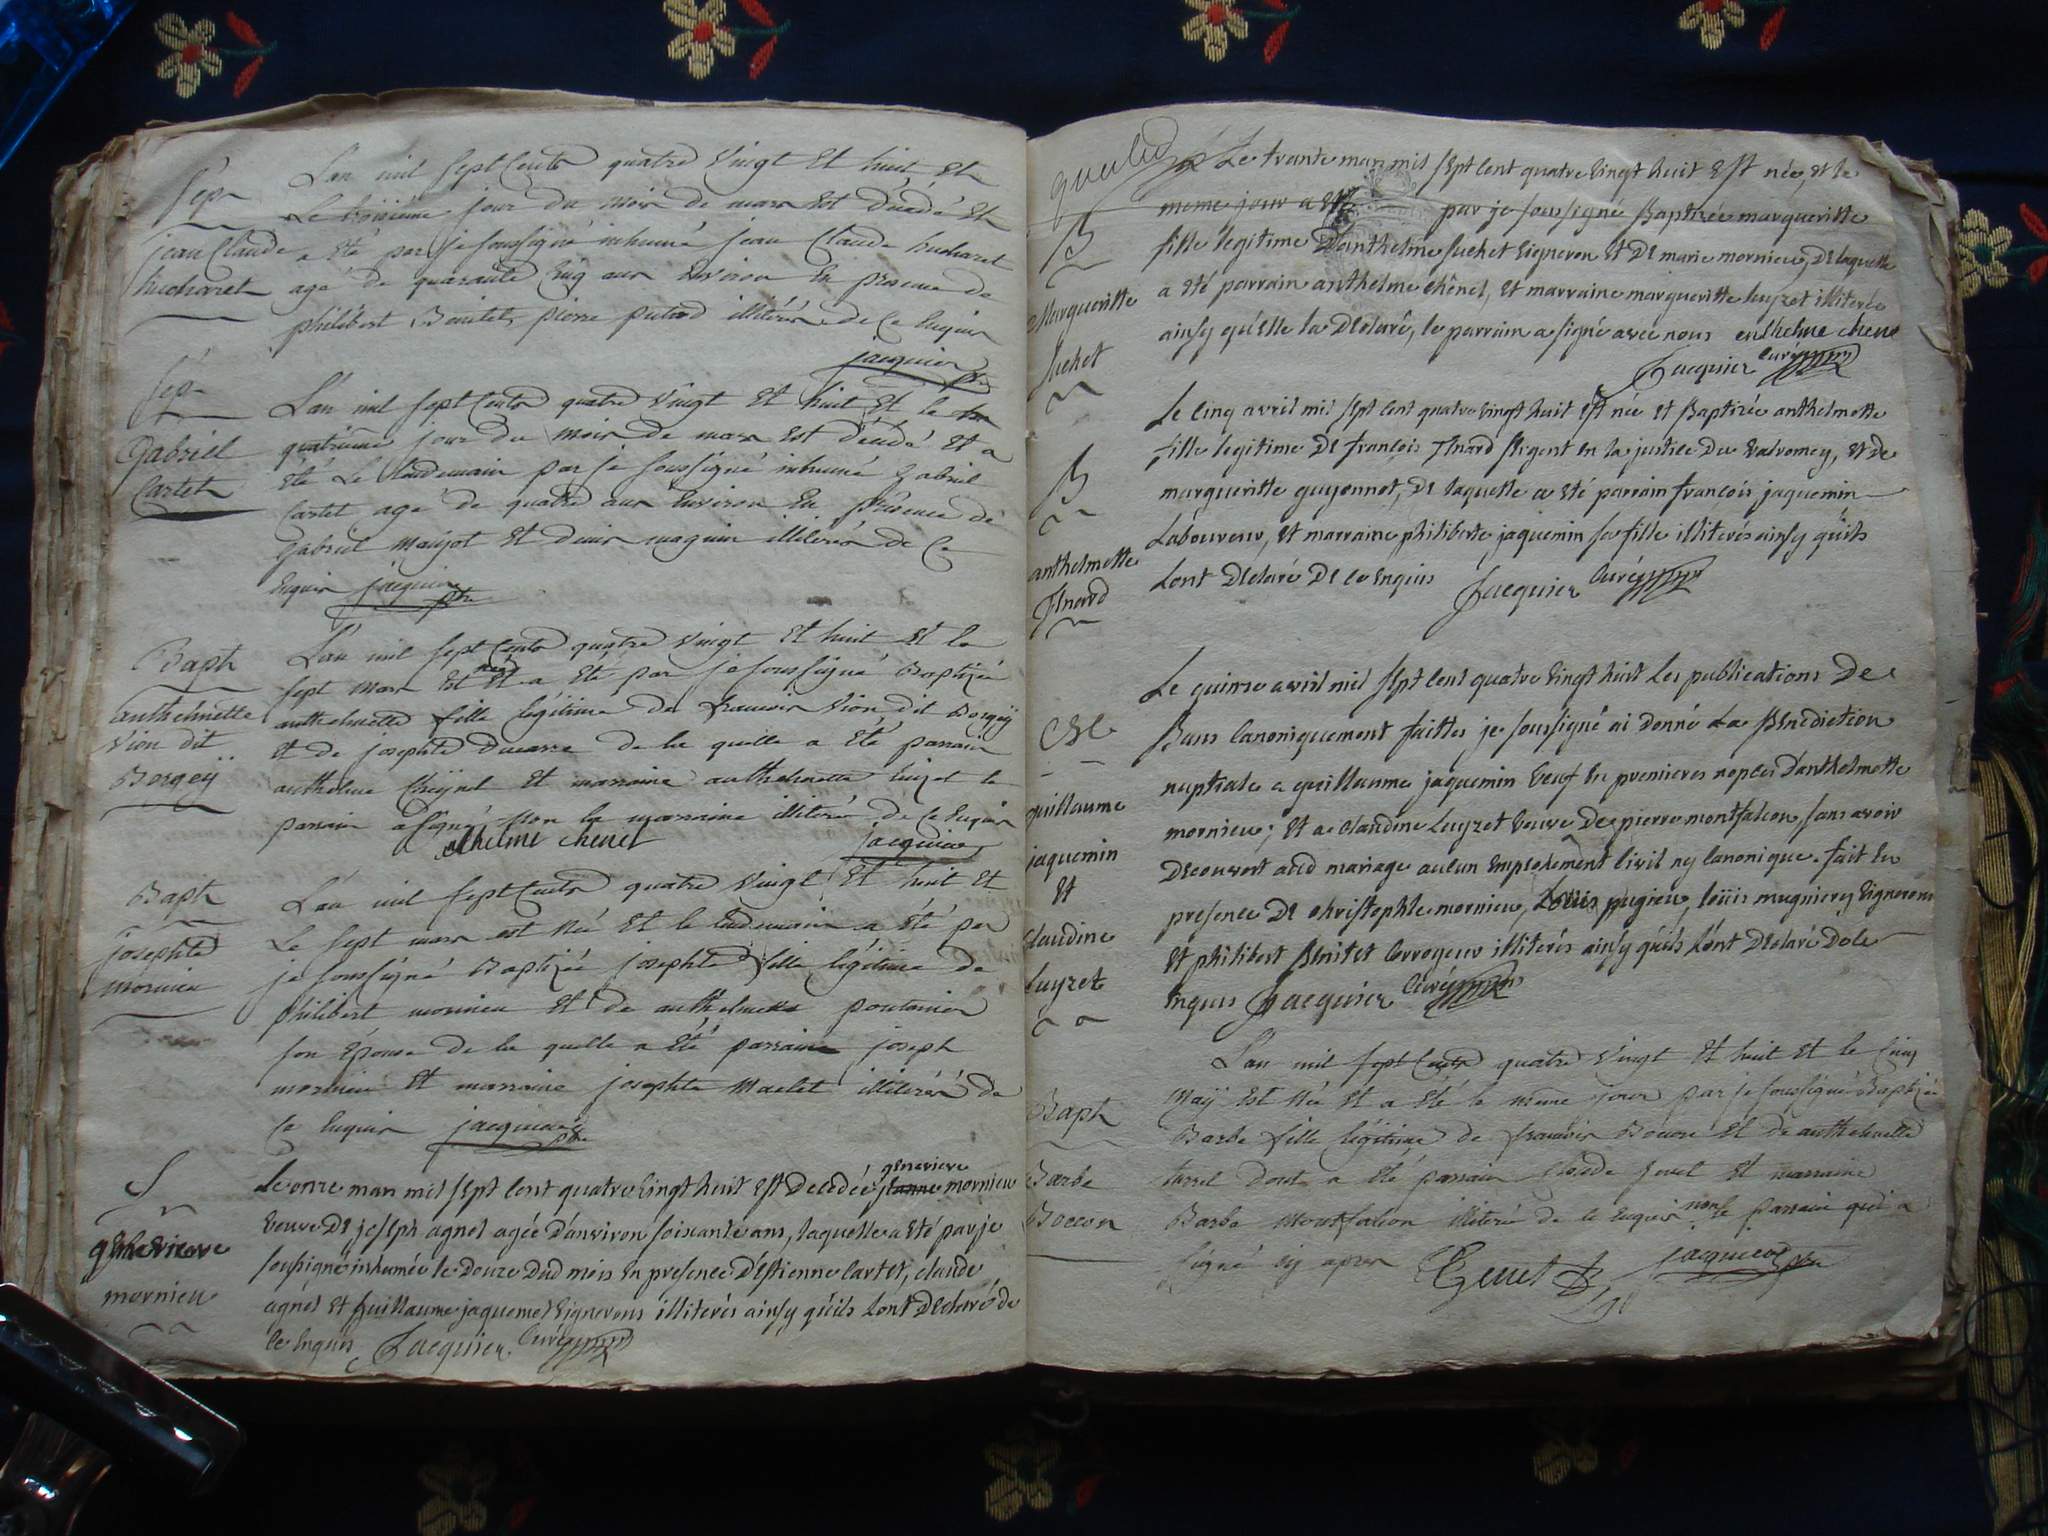 Sep.
jean Claude
huchard
L'an mil sept Cents quatre Vingt Et huit Et
Le troisième jour du mois de mars Est décédé Et
a Eté par je soussigné inhumé jean Claude huchard
agé de quarante Cinq ans Environ En présence de
philibert Benitet, pierre illiterés de Ce Enquis
jacquier ptre
Sep.
Gabriel
Cartet
L'an mil sept Cents quatre Vingt Et huit Et le
quatrième jour du mois de mars Est décédé Et a
Eté Le Lendemain par je soussigné inhumé Gabriel
Cartet agé de quatre ans Environ En présence de
Gabriel Et denis illiterés de Ce
Enquis jacquier ptre
Bapt
anthelmette
Vion dit
Borgeÿ
L'an mil sept Cents quatre Vingt Et huit Et le
sept mars Est née Et a Eté par je soussigné Baptizée
anthelmette fille légitime de francois Vion dit Borgeÿ
Et de josephte Ducarre de la quelle a Eté parrain
anthelme Cheynel Et marraine anthelmette Luizet le
parrain a signé Non la marraine illiterée de Ce Enquis
anthelme chenel jacquier
Bapt
josephte
mornieu
L'an mil sept Cents quatre Vingt Et huit Et
Le sept mars est Née Et le lendemain a Eté par
je soussigné Baptizée josephte fille légitime de
philibert mornieu Et de anthelmette
son Epouse de la quelle a Eté parrain joseph
mornieu Et marraine josephte illiterés de
Ce Enquis jacquier ptre
S
genevieve
mornieu
Le onze mars mil sept Cent quatre Vingt huit Est Decedée jeanne genevieve mornieu
Veuve De joseph agnel agée D'anviron soixante ans, laquelle a Eté par je
soussigné inhumée le Douze Dud mois En presence D'Estienne Cartet, claude
agnel Et Guillaume jaquemet Vignerons illiterés ainsy qu'ils L'ont Declaré de
Ce Enquis Jacquier Curé
B
Margueritte
suchet
Le trante mars mil sept Cent quatre Vingt huit Est née, et le
meme jour a Eté par je soussigné Baptizée margueritte
fille legitime D'anthelme suchet Vigneron Et De marie mornieu, De laquelle
a Eté parrain anthelme chênel, Et marraine margueritte luyzet illiterée
ainsy qu'Elle la Declaré, le parrain a signé avec nous enthelme chene
Jacquier Curé
B
anthelmette
Thnard
Le Cinq avril mil sept Cent quatre Vingt huit Est née Et Baptizée anthelmette
fille legitime De françois Thnard sergent En la justice Du Valromey, Et de
margueritte guyonnet, De laquelle a Eté parrain françois jaquemin
Laboureur, Et marraine philiberte jaquemin sa fille illiterés ainsy qu'ils
Lont Declaré De ce Enquis Jacquier Curé
guillaume
jaquemin
Et
claudine
Luyzet
Le quinze avril mil sept Cent quatre Vingt huit Les publications De
Bans Canoniquement faittes je soussigné ai Donné La Benediction
nuptiale a guillaume jaquemin Veuf En premieres nopces D'anthelmette
mornieu; Et a Claudine Luyzet Veuve De pierre montfalcon, sans avoir
Decouvert aud mariage aucun Empechement Civil ny Canonique. fait En
presence De christophle mornieu, Louis pugieu, loüis mugniery Vignerons
Et philibert Benitet Corroyeur illiterés ainsy qu'ils L'ont Declaré De ce
Enquis Jacquier Curé
Bapt
Barbe
Boccon
L'an mil sept Cents quatre Vingt Et huit Et le Cinq
Maÿ Est Née Et a Eté le même jour par je soussigné Baptizée
Barbe fille légitime de francois Bocon Et de anthelmette
dont a Eté parrain Claude Et marraine
Barbe Montfalcon illiterée de Ce Enquis non le parrain qui a
signé Cy apres jacquier ptre